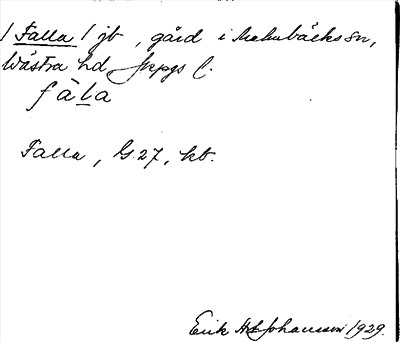 / Falla / jb, gård i Malmbäcks sn,
Västra hd, Jkpgs l.
fàla
Falla, G. 27, kb.
Erik Johansson 1929.